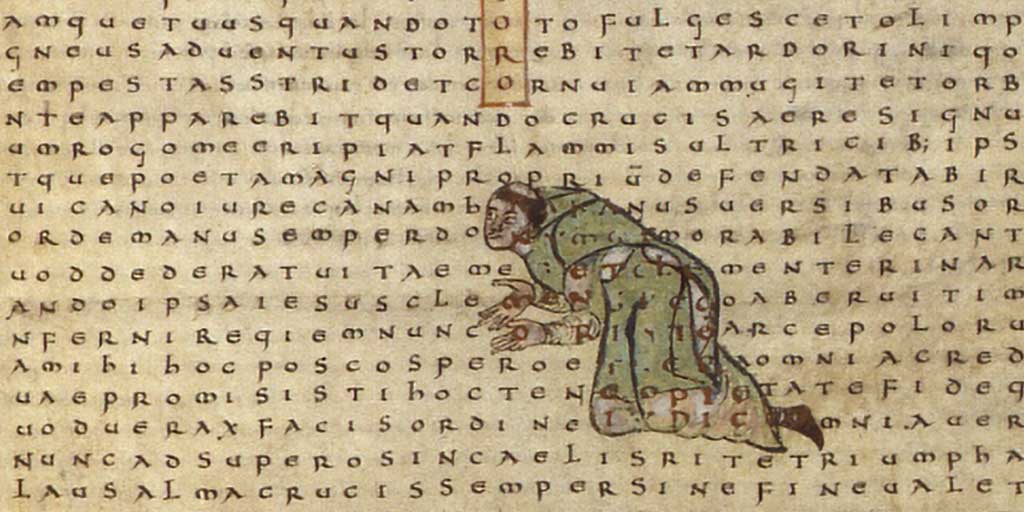 AMQUETUUSQUANDOTOTOFULGESCETOLIMP
GNEUSADUENTUSTORREBITETARDORINIQO
EMPESTASSTRIDETCORNUIAMMUGITETORB
NTEAPPAREBITQUANDOCRUCISAERESIGNU
UMROGOMEERIPIATFLAMMISULTRICIB;IPS
TQUEPOETAMAGNIPROPRIŪDEFENDATABIR
UICANOIURECANAMB ANUSUERSIBUSOR
ORDEMANUSEMPERDO MORABILECANT
UODDEDERATUITAEME ET MENTERINAR
ANDOIPSAIESUSCLE OABERUITIM
NFERNIREQIEMNUNC O RISTE ARCEPOLORU
AMIHIHOCPOSCOSPEROE OMNIACRED
UAEPROMISISTIHOCTENEOPIETATEFIDEQ
UODUERAXFACISORDINE IUDIC OMNIAUER
NUNCADSUPEROSINCAELISRITETRIUMPHA
LAUSALMACRUCISSEMPERSINEFINEUALET